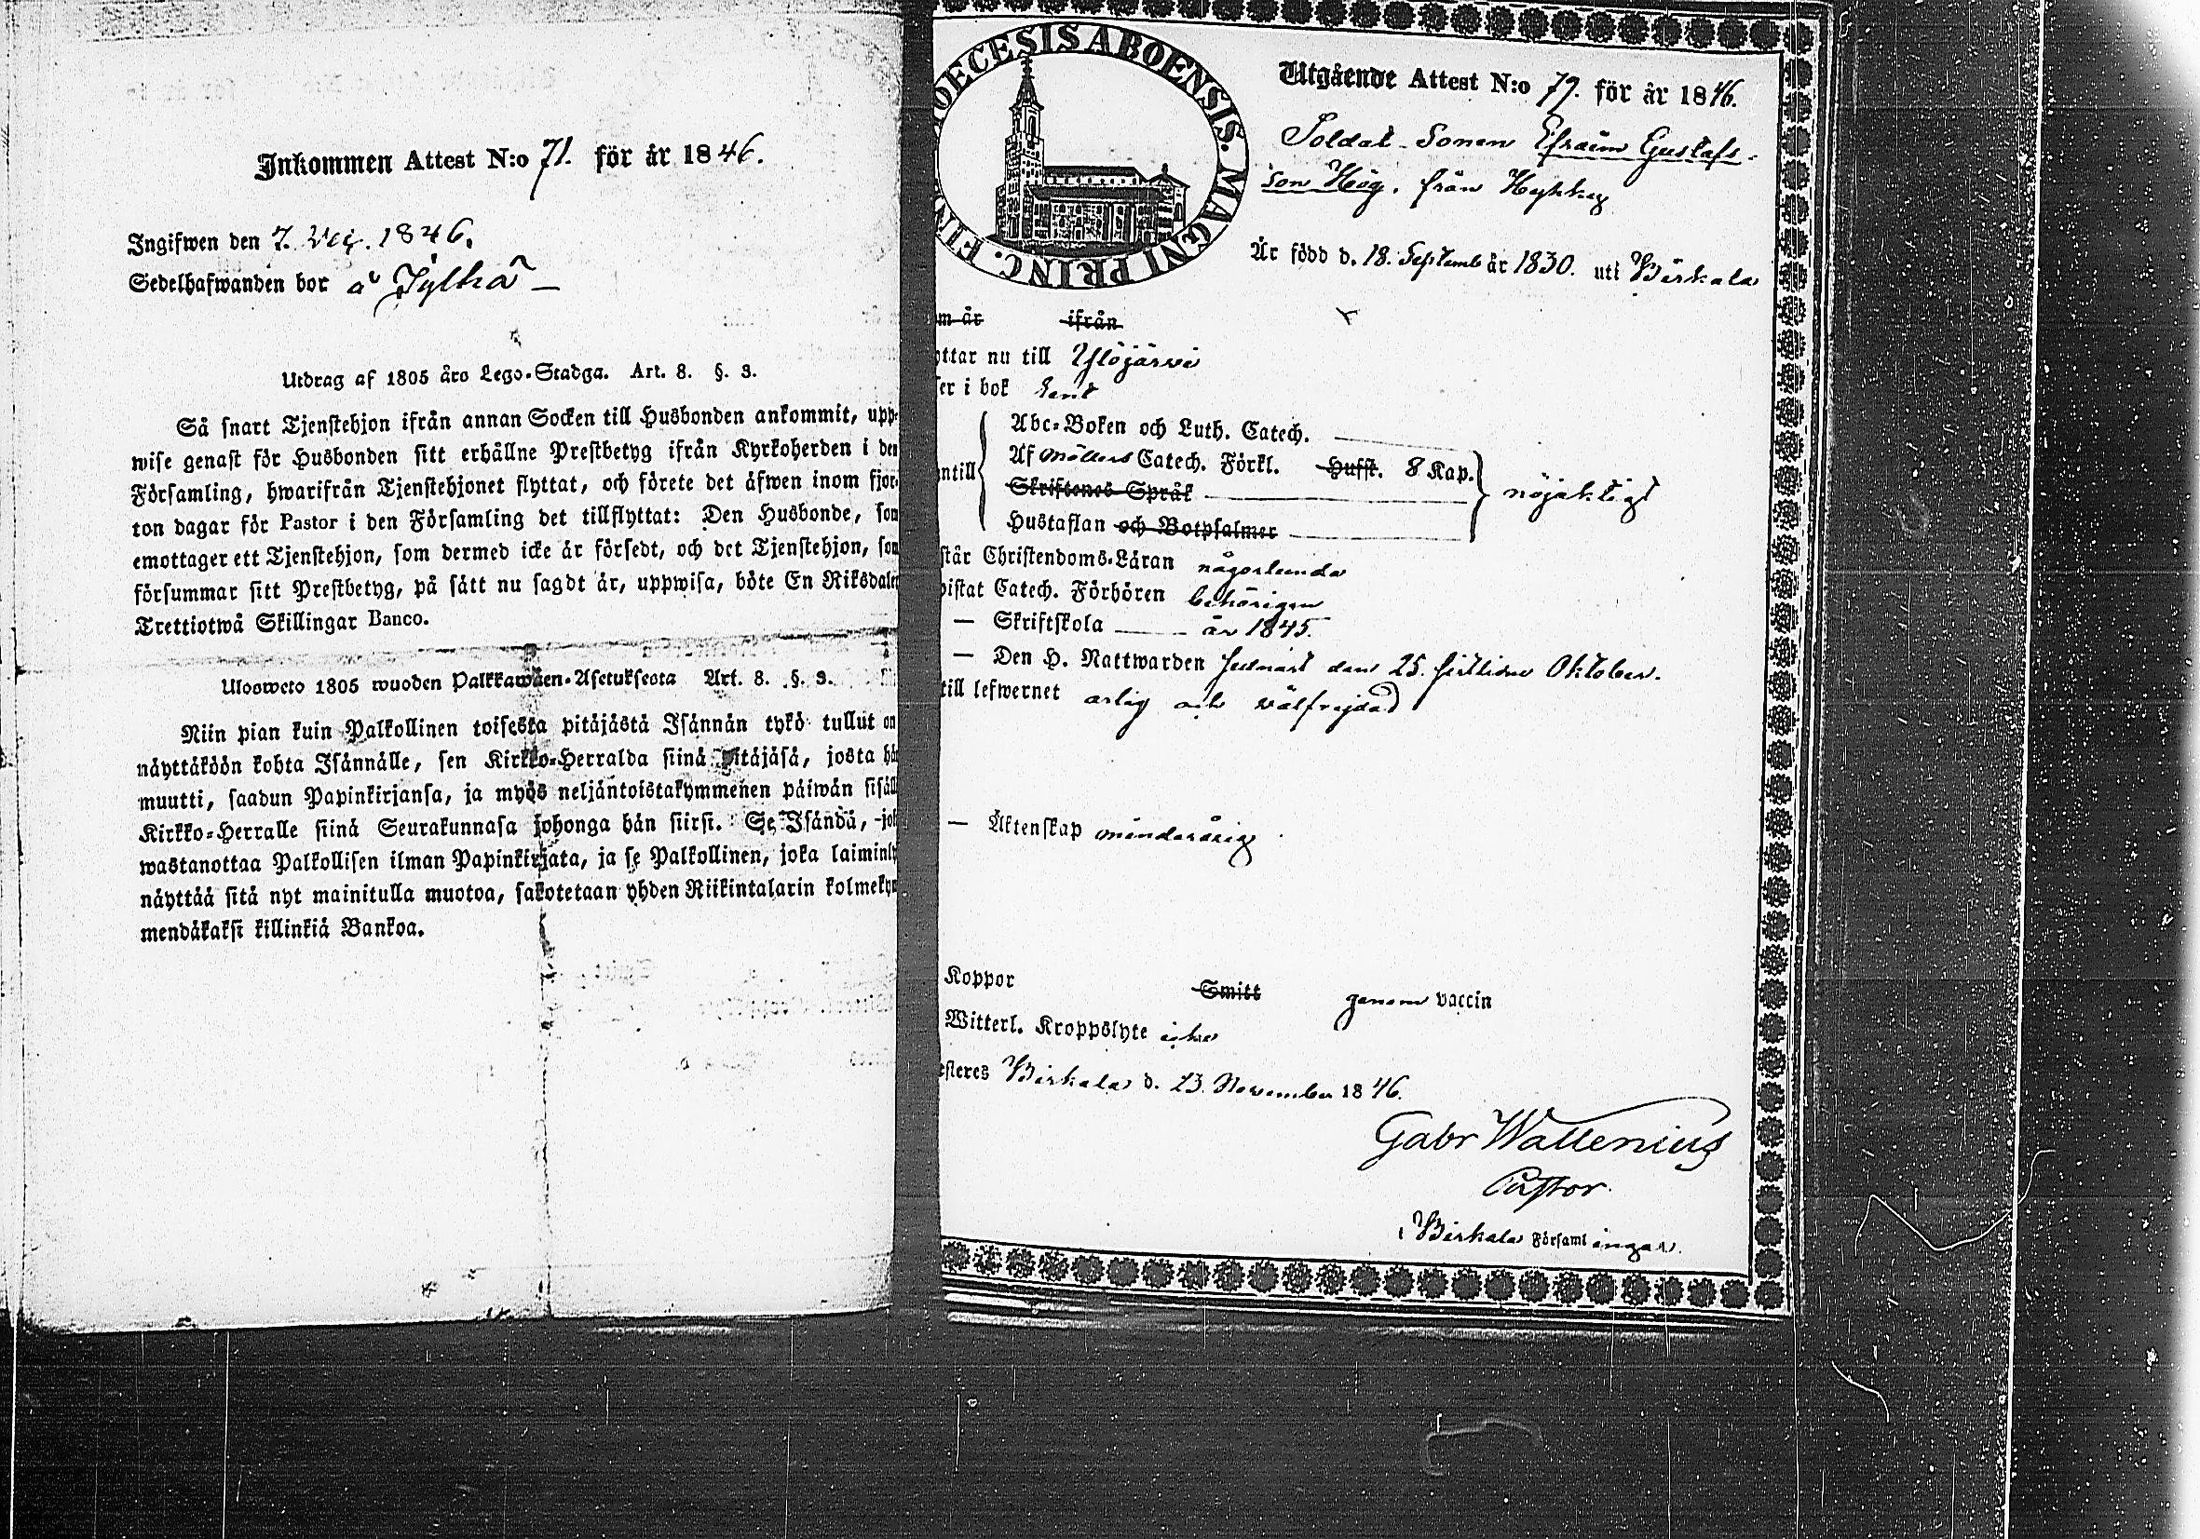 Inkommen Attest N:o 71. för år 1846.
Ingifwen den 7. 1846.
Sedelhafwanden bor å Jylhä
Utdrag af 1805 års Lego-Stadga. Art. 8. §. 3.
Så snart Tjenstehjon ifrån annan Socken till Husbonden ankommit, upp-
wise genast för Husbonden sitt erhållne Prestbetyg ifrån Kyrkoherden i den
Församling, hwarifrån Tjenstehjonet flyttat, och förete det äfwen inom fjor-
ton dagar för Pastor i den Församling det tillflyttat: Den Husbonde, som
emottager ett Tjenstehjon, som dermed icke är försedt, och det Tjenstehjon, som
försummar sitt Prestbetyg, på sätt nu sagdt är, uppwisa, böte En Riksdaler
Trettiotwå Skillingar Banco.
Ulosweto 1805 wuoden Palkkawäen-Asetuksesta Art. 8. §. 3.
Niin pian kuin Palkollinen toisesta pitäjästä Isännän tykö tullut on
näyttäköön kohta Isännälle, sen Kirkko-Herralda siinä pitäjäsä, josta hän
muutti, saadun Papinkirjansa, ja myös neljäntoistakymmenen päiwän sisäll
Kirkko-Herralle siinä Seurakunnasa johonga hän siirsi. Se Isändä, jok
wastanottaa Palkollisen ilman Papinkirjata, ja se Palkollinen, joka laiminly
näyttää sitä nyt mainitulla muotoa, sakotetaan yhden Riikintalarin kolmekym
mendäkaksi killinkiä Bankoa.
DIOECESIS ABOENSIS. MAGNI PRINC. FIN
Utgående Attest N:o 79. för år 1846.
Soldat-Sonen Efraim Gustafs-
son Hög, från Hykky
Är född d. 18. Septemb år 1830. uti Birkala
m år ifrån
yttar nu till Ylöjärvi
ser i bok
Abc-Boken och Luth. Catech.
Af Möllers Catech. Förkl. Hufst. 8 Kap.
ntill Skriftenes Språk nöjaktigt
Hustaflan och Botpsalmer
står Christendoms-Läran någorlunda
wistat Catech. Förhören behörigen
— Skriftskola år 1845.
— Den H. Nattwarden sednast den 25. sistlidne Oktober.
till lefwernet ärlig och välfrejdad
— Äktenskap minderårig
Koppor Smitt genom vaccin
Witterl. Kroppslyte icke
esteres Birkala d. 23. November 1846.
Gabr Wallenius
Pastor
i Birkala Församl ingar.